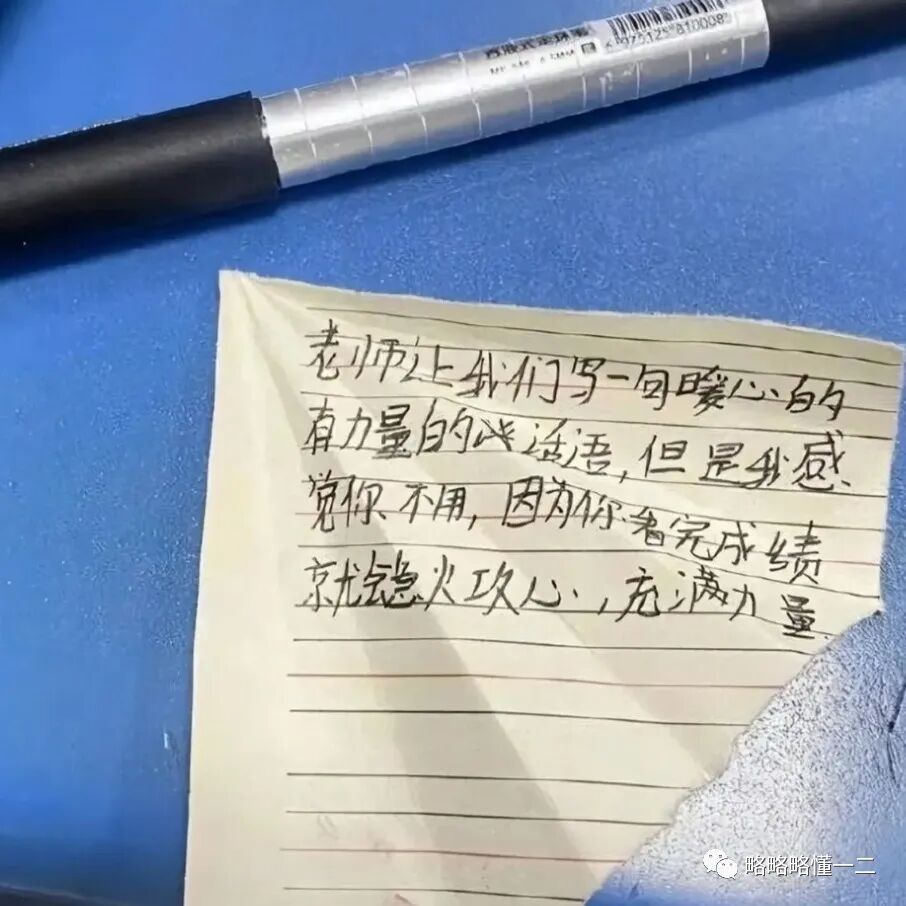 直液式走珠笔
6 975125 810008
老师让我们写一句暖心的
有力量的些话语,但是我感
觉你不用,因为你看完成绩
就会急火攻心,充满力量.
略略略懂一二